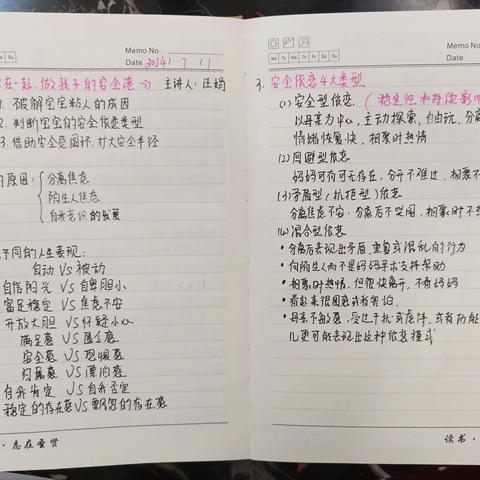 Memo No.
Date 2024 7 11
在一起,做孩子的安全港 主讲人:汪娟
1. 破解宝宝粘人的成因
2. 判断宝宝的安全依恋类型
3. 借助安全感圆环,扩大安全半径
原因:
分离焦虑
陌生人焦虑
自我意识的发展
不同的人生表现:
自动 VS 被动
自信阳光 VS 自卑胆小
富足稳定 VS 焦虑不安
开放大胆 VS 怀疑小心
满足感 VS 匮乏感
安全感 VS 恐惧感
归属感 VS 漂泊感
自我肯定 VS 自我否定
稳定的存在感 VS 飘忽的存在感
志在圣贤
Memo No.
Mo Tu We Th Fr Sa Su
Date
3. 安全依恋4大类型
(1) 安全型依恋 (稳定性和持续影响
以母亲为中心,主动探索,自由玩,分离
情绪恢复快,相聚时热情
(2) 回避型依恋
妈妈可有可无存在,分开不难过,相聚不
(3) 矛盾型(抗拒型)依恋
分离焦虑不安,分离后不哭闹,相聚时不
(4) 混合型依恋
• 分离后表现出矛盾,重复或混乱的行为
• 向陌生人而不是妈妈寻求支持帮助
• 相聚时热情,但很快离开,不看妈妈
• 看起来很困惑或害怕
• 母亲不敏感,受过干扰或虐待,或有功能
儿更可能表现出这种依恋模式
读书